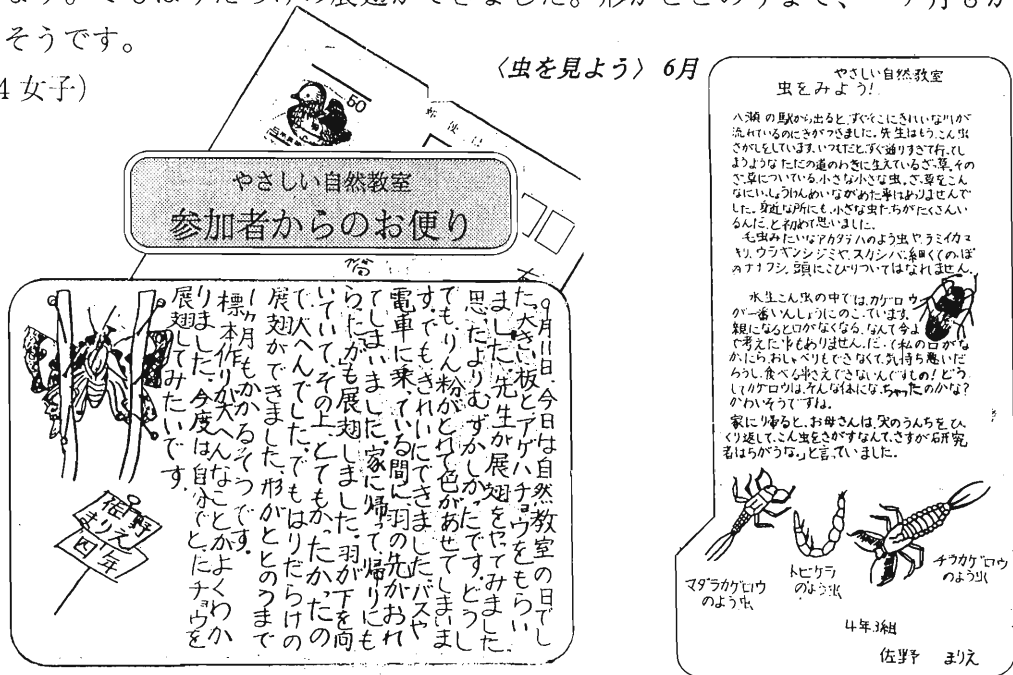 そうです。
4女子）
〈虫を見よう〉6月
50
やさしい自然教室
参加者からのお便り
9月11日、今日は自然教室の日でし
た。大きい板とアゲハチョウをもらい
ました。先生が展翅をやってみました。
思ったよりむずかしかったです。どうし
ても、りん粉がとれて色があせてしまいま
す。でもきれいにできました。バスや
電車に乗っている間に、羽の先がおれ
てしまいました。家に帰って帰りにも
らったがも展翅しました。羽が下を向
いていて、その上、とてもかったかったの
で大へんでした。でもはりだらけの
展翅ができました。形がととのうまで
1ヵ月もかかるそうです。
標本作りが大へんなことがよくわか
りました。今度は自分でとったチョウを
展翅してみたいです。
佐野
まりえ
四年
やさしい自然教室
虫をみよう！
八瀬の駅から出ると、すぐそこにきれいな川が
流れているのにきがつきました。先生はもう、こん虫
さがしをしています。いつもだとすぐ通りすぎて行ってし
まうような ただの道のわきに生えているざっ草、その
ざっ草についている、小さな小さな虫。ざっ草をこん
なにいっしょうけんめいながめた事はありませんで
した。身近な所にも、小さな虫たちがたくさんい
るんだ、と初めて思いました。
毛虫みたいなアカタテハのよう虫や、ラミイカマ
キリ、ウラギンシジミや、スカシバ、細くてのっぽ
のナナフシ、頭にこびりついてはなれません。
水生こん虫の中では、カゲロウ
が一番いんしょうにのこっています。
親になると口がなくなる、なんて今ま
で考えた事もありません。だって私の口がな
かったら、おしゃべりもできなくて、気持ち悪いだ
ろうし、食べる事さえできないんですもの！どう
してカゲロウは、そんな体になっちゃったのかな？
かわいそうですね。
家に帰ると、お母さんは、「犬のうんちをひっ
くり返して、こん虫をさがすなんて、さすが研究
者はちがうな。」と言っていました。
マダラカゲロウ
のよう虫
トビケラ
のよう虫
チラカゲロウ
のよう虫
4年3組
佐野 まりえ